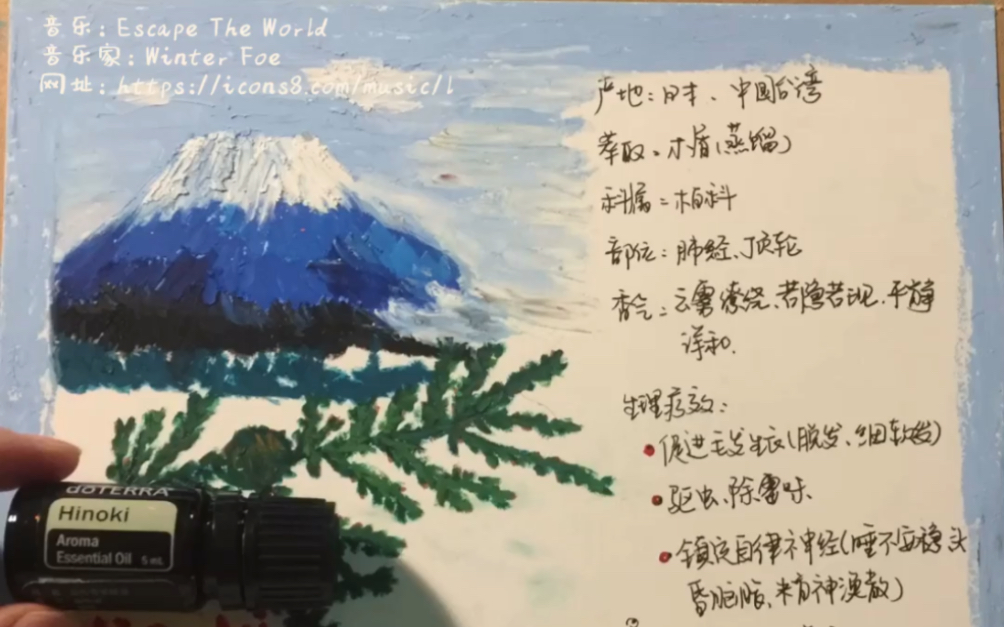 音乐：Escape The World
音乐家：Winter Foe
网址：https://icons8.com/music/l
产地：日本、中国台湾
萃取：木屑（蒸馏）
科属：柏科
部位：肺经、顶轮
香气：云雾缭绕、若隐若现、平静
详和。
生理疗效：
促进毛发生长（脱发、细软发）
驱虫、除霉味
镇定自律神经（睡不安稳、头
昏脑胀、精神涣散）
doTERRA
Hinoki
Aroma
Essential Oil 5 mL